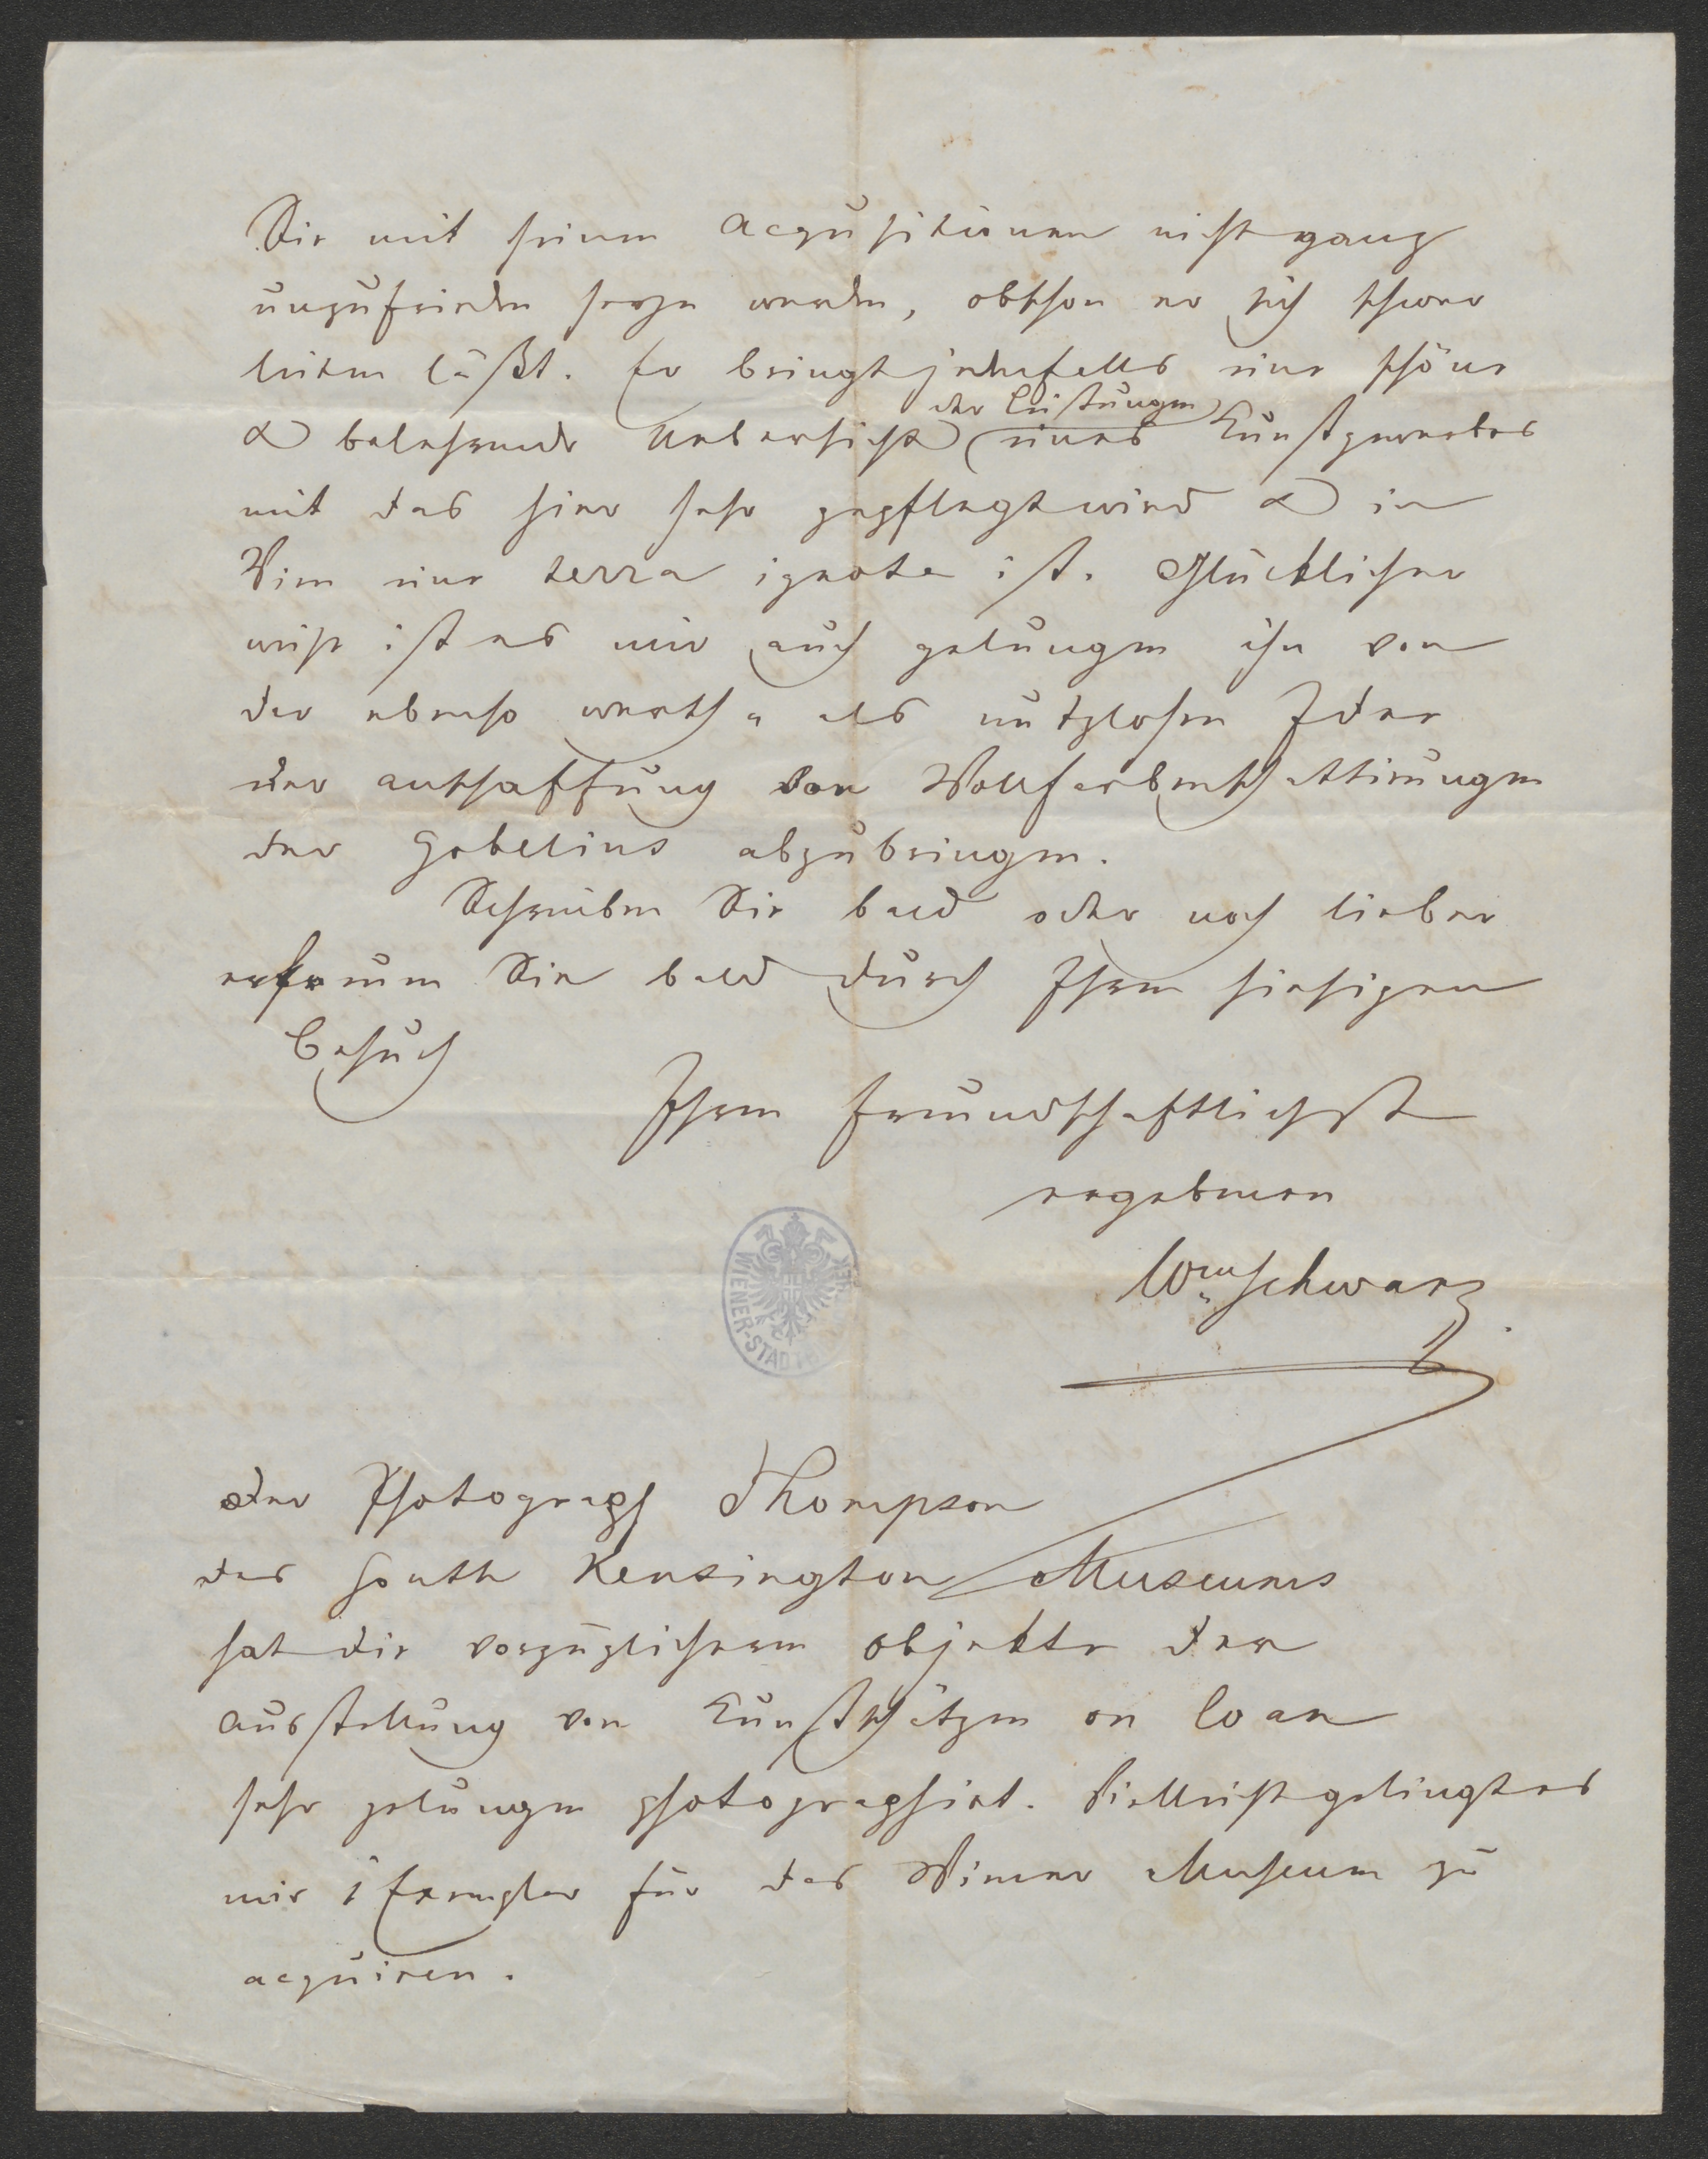 Sie mit seinen Acquisitionen nicht ganz
unzufrieden seyn werden, obschon er sich schwer
leiten läßt. Er bringt jedenfalls eine schöne
& belehrende Uebersicht der Leistungen eines Kunstgewerbes
mit das hier sehr gepflegt wird & in
Wien eine terra ignota ist. Glücklicher
weise ist es mir auch gelungen ihn von
der ebenso werth- als nutzlosen Idee
der Anschaffung von Wollfarbenschattirungen
der Gobelins abzubringen.
Schreiben Sie bald oder noch lieber
erfreuen Sie bald durch Ihren hiesigen
Besuch
Ihren freundschaftlichst
ergebenen
Wm Schwarz
WIENER-STADT
Der Photograph Thompson
des South Kensington Museums
hat die vorzüglicheren Objekte der
Ausstellung von Kunstschätzen on loan
sehr gelungen photographirt. Vielleicht gelingt es
mir 1 Exemplar für das Wiener Museum zu
acquiren.